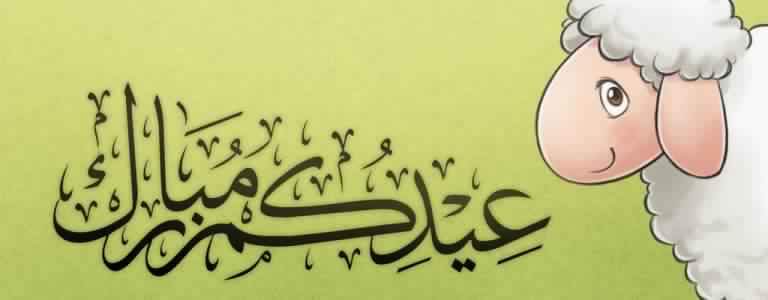 عِيْدُكُم مُبَارَك